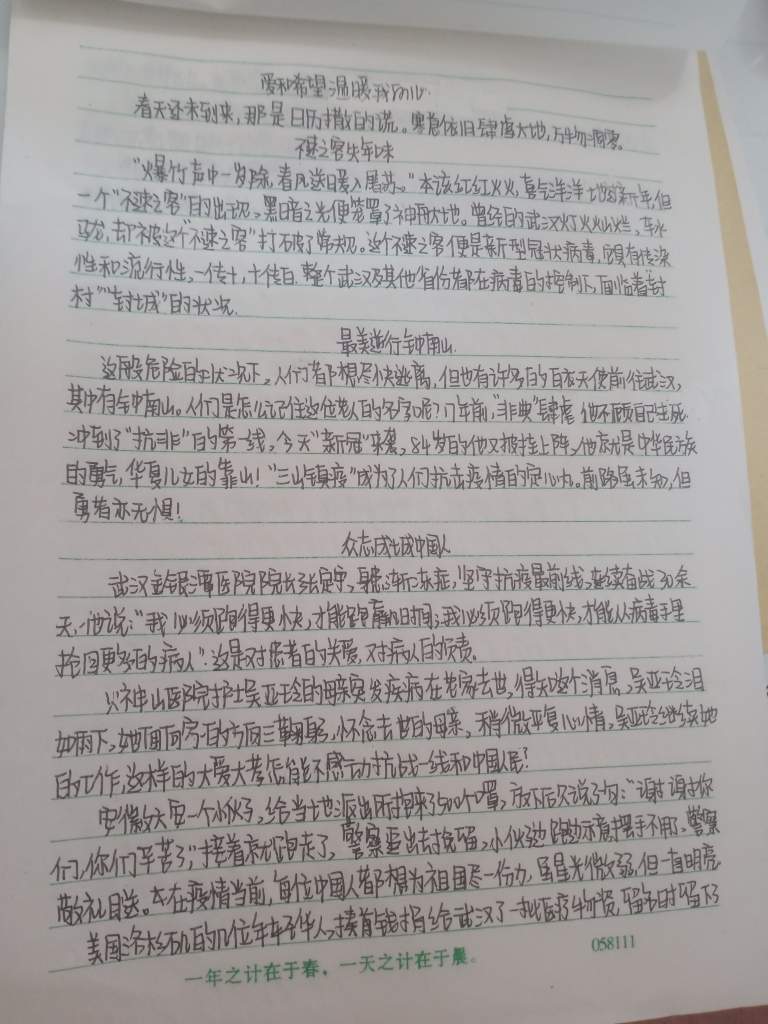 爱和希望温暖我们心
春天还未到来，那是日历撒的谎。寒意依旧肆虐大地，万物凋零。
不速之客失年味
“爆竹声中一岁除，春风送暖入屠苏。”本该红红火火，喜气洋洋地迎新年，但
一个“不速之客”的出现，黑暗之光便笼罩了神州大地。曾经的武汉灯火灿烂，车水
马龙，却被这个“不速之客”打破了常规。这个不速之客便是新型冠状病毒，具有传染
性和流行性，一传十，十传百，整个武汉及其他省份都在病毒的控制下，面临着“封
村”“封城”的状况。
最美逆行钟南山
这般危险的状况下，人们都想尽快逃离，但也有许多的白衣天使前往武汉，
其中有钟南山。人们是怎么记住这位老人的名字呢？17年前，“非典”肆虐，他不顾自己生死，
冲到了“抗非”的第一线，今天“新冠”来袭，84岁的他又披挂上阵，他就是中华民族
的勇气，华夏儿女的靠山！“三山镇疫”成为了人们抗击疫情的定心丸。前路虽未知，但
勇者亦无惧！
众志成城中国人
武汉金银潭医院院长张定宇，身患渐冻症，坚守抗疫最前线，连续奋战30余
天，他说：“我必须跑得更快，才能跑赢时间；我必须跑得更快，才能从病毒手里
抢回更多的病人”。这是对患者的关爱，对病人的负责。
火神山医院护士吴亚玲的母亲突发疾病在老家去世，得知这个消息，吴亚玲泪
如雨下，她面向家的方向三鞠躬，怀念去世的母亲，稍微平复心情，吴亚玲继续她
的工作，这样的大爱大孝怎能不感动抗战一线和中国人民？
安徽六安一个小伙子，给当地派出所抱来了500个口罩，放下后只说了句：“谢谢，谢谢你
们，你们辛苦了”，接着就跑走了，警察追出去挽留，小伙边跑边示意摆手不用了，警察
敬礼目送。在疫情当前，每位中国人都想为祖国尽一份力，虽星光微弱，但一直明亮。
美国洛杉矶的几位年轻华人，攒着钱捐给武汉了一批医疗物资，留名时留下了
一年之计在于春，一天之计在于晨。
058111